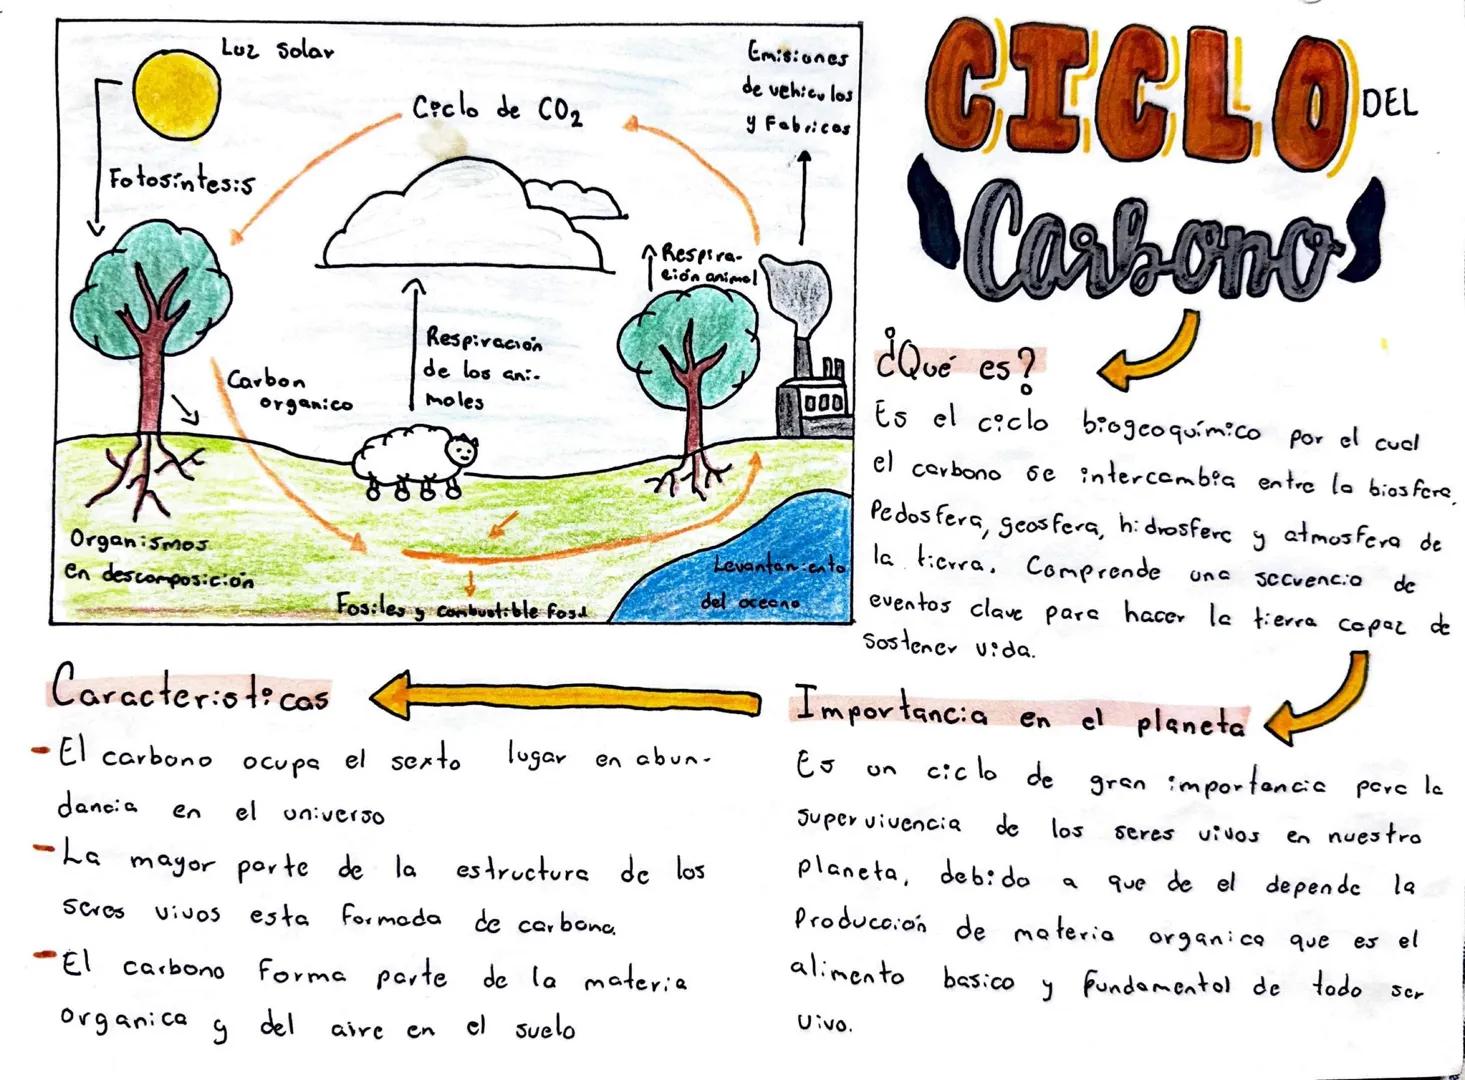 CICLO DEL
Carbono
Luz solar
Fotosíntesis
Ciclo de CO2
Emisiones
de vehiculos
y Fabricas
Respira-
ción animal
Respiración
de los ani-
males
Carbon
organico
Organismos
en descomposición
Fosiles y combustible fosil
Levantamiento
del oceano
¿Qué es?
Es el ciclo biogeoquímico por el cual
el carbono se intercambia entre la biosfera,
Pedosfera, geosfera, hidrosfera y atmosfera de
la tierra. Comprende una secuencia de
eventos clave para hacer la tierra capaz de
sostener vida.
Importancia en el planeta
Es un ciclo de gran importancia para la
supervivencia de los seres vivos en nuestro
planeta, debido a que de el depende la
Producción de materia organica que es el
alimento basico y fundamental de todo ser
vivo.
Caracteristicas
- El carbono ocupa el sexto lugar en abun-
dancia en el universo
- La mayor parte de la estructura de los
seres vivos esta formada de carbono.
- El carbono forma parte de la materia
organica y del aire en el suelo